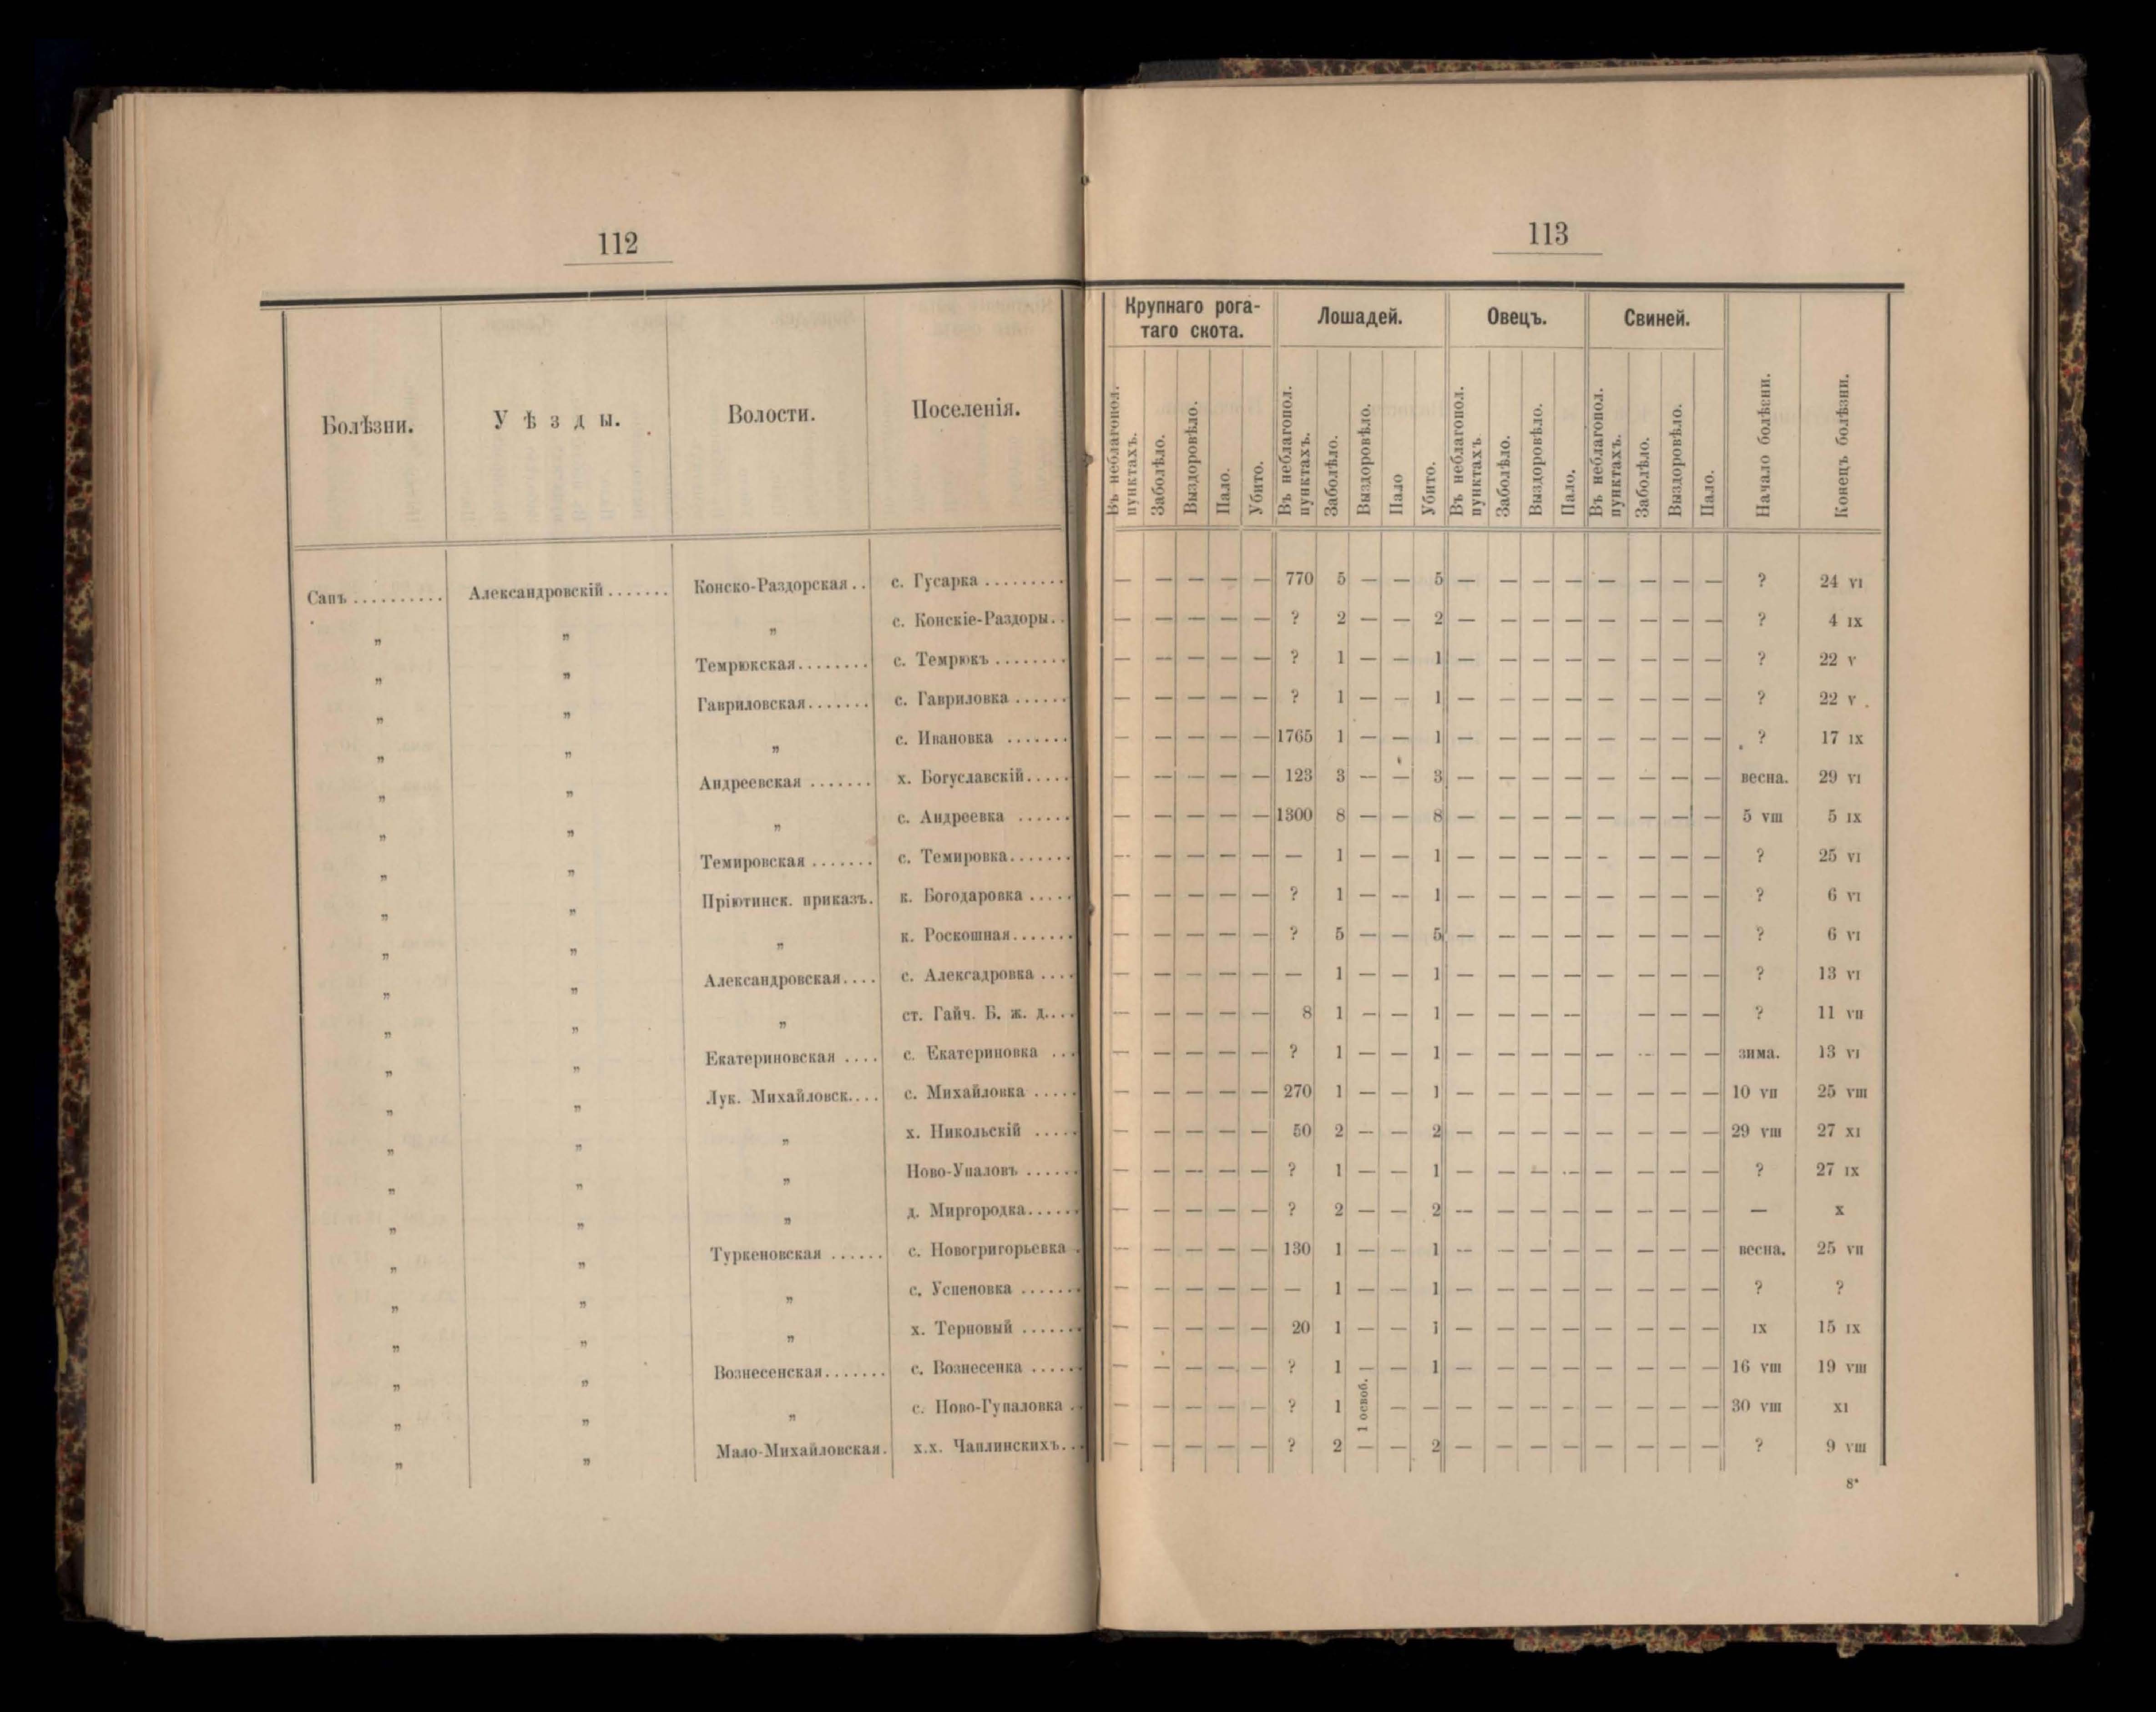 112
Болѣзни. Уѣзды. Волости. Поселенія.
Сапъ .......... Александровскій ....... Конско-Раздорская .. с. Гусарка .........
„ „ „ с. Конскіе-Раздоры..
„ „ Темрюкская........ с. Темрюкъ ........
„ „ Гавриловская....... с. Гавриловка ......
„ „ „ с. Ивановка .......
„ „ Андреевская ....... х. Богуславскій.....
„ „ „ с. Андреевка ......
„ „ Темировская ....... с. Темировка.......
„ „ Пріютинск. приказъ. к. Богодаровка .....
„ „ „ к. Роскошная.......
„ „ Александровская.... с. Алексадровка ....
„ „ „ ст. Гайч. Б. ж. д....
„ „ Екатериновская .... с. Екатериновка ...
„ „ Лук. Михайловск.... с. Михайловка .....
„ „ „ х. Никольскій .....
„ „ „ Ново-Упаловъ ......
„ „ „ д. Миргородка......
„ „ Туркеновская ...... с. Новогригорьевка .
„ „ „ с. Успеновка .......
„ „ „ х. Терновый .......
„ „ Вознесенская....... с. Вознесенка ......
„ „ „ с. Ново-Гупаловка ..
„ „ Мало-Михайловская. х.х. Чаплинскихъ...
113
Крупнаго рога-
таго скота. Лошадей. Овецъ. Свиней.
Въ неблагопол. пунктахъ. Заболѣло. Выздоровѣло. Пало. Убито. Въ неблагопол. пунктахъ. Заболѣло. Выздоровѣло. Пало Убито. Въ неблагопол. пунктахъ. Заболѣло. Выздоровѣло. Пало. Въ неблагопол. пунктахъ. Заболѣло. Выздоровѣло. Пало. Начало болѣзни. Конецъ болѣзни.
— — — — — 770 5 — — 5 — — — — — — — — ? 24 VI
— — — — — ? 2 — — 2 — — — — — — — — ? 4 IX
— — — — — ? 1 — — 1 — — — — — — — — ? 22 V
— — — — — ? 1 — — 1 — — — — — — — — ? 22 V
— — — — — 1765 1 — — 1 — — — — — — — — ? 17 IX
— — — — — 123 3 — — 3 — — — — — — — — весна. 29 VI
— — — — — 1300 8 — — 8 — — — — — — — — 5 VIII 5 IX
— — — — — — 1 — — 1 — — — — — — — — ? 25 VI
— — — — — ? 1 — — 1 — — — — — — — — ? 6 VI
— — — — — ? 5 — — 5 — — — — — — — — ? 6 VI
— — — — — — 1 — — 1 — — — — — — — — ? 13 VI
— — — — — 8 1 — — 1 — — — — — — — ? 11 VII
— — — — — ? 1 — — 1 — — — — — — — — зима. 13 VI
— — — — — 270 1 — — 1 — — — — — — — — 10 VII 25 VIII
— — — — — 50 2 — — 2 — — — — — — — — 29 VIII 27 XI
— — — — — ? 1 — — 1 — — — — — — — — ? 27 IX
— — — — — ? 2 — — 2 — — — — — — — — — X
— — — — — 130 1 — — 1 — — — — — — — — весна. 25 VII
— — — — — — 1 — — 1 — — — — — — — — ? ?
— — — — — 20 1 — — 1 — — — — — — — — IX 15 IX
— — — — — ? 1 — — 1 — — — — — — — — 16 VIII 19 VIII
— — — — — ? 1 1 освоб. — — — — — — — — — — 30 VIII XI
— — — — — ? 2 — — 2 — — — — — — — — ? 9 VIII
8*